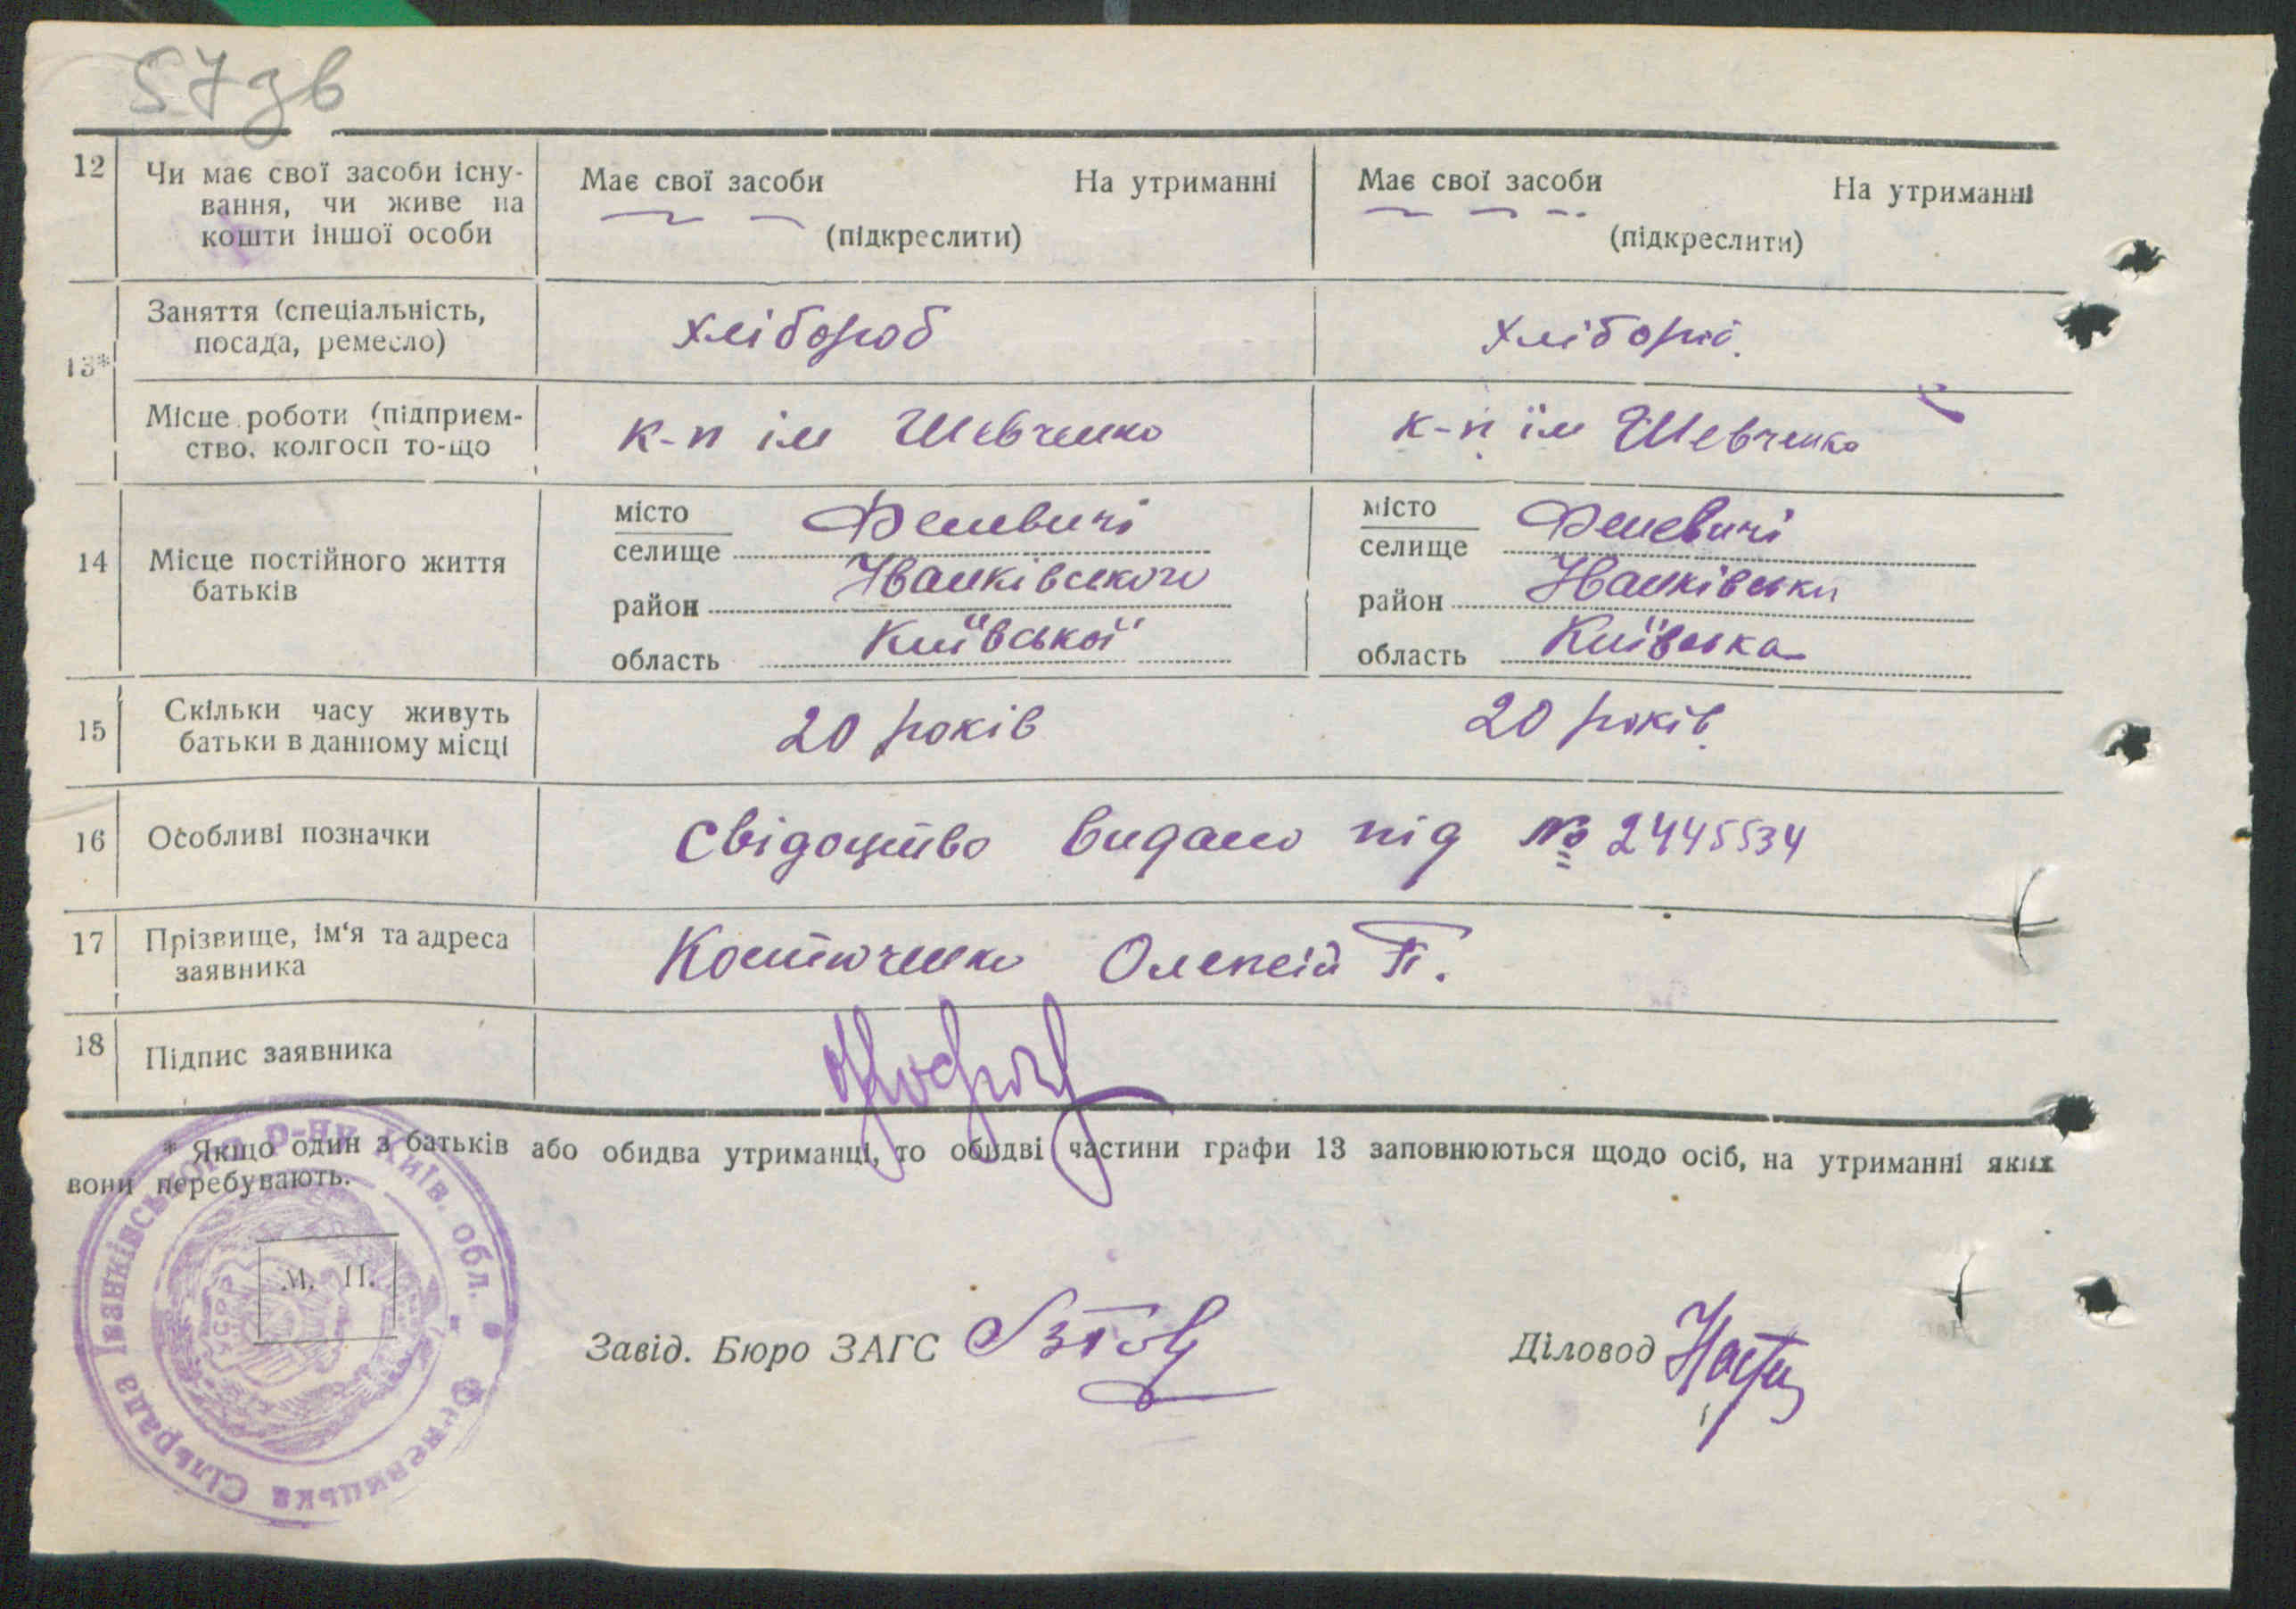 57зв
12 Чи має свої засоби існу- Має свої засоби На утриманні Має свої засоби На утриманні
вання, чи живе на
кошти іншої особи (підкреслити) (підкреслити)
Заняття (спеціальність, хлібороб хлібороб
13* посада, ремесло)
Місце роботи (підприєм- к-п ім Шевченко к-п ім Шевченко
ство, колгосп то-що
місто Феневичі місто Феневичі
14 Місце постійного життя селище селище
батьків район Іванківського район Іванківськи
область Київської область Київська
15 Скільки часу живуть 20 років 20 років
батьки в данному місці
16 Особливі позначки Свідоцтво видано під № 2445534
17 Прізвище, ім'я та адреса Костюченко Олексій П.
заявника
18 Підпис заявника
* Якщо один з батьків або обидва утриманці, то обидві частини графи 13 заповнюються щодо осіб, на утриманні яких
вони перебувають.
М. П.
Завід. Бюро ЗАГС Діловод
Феневицька Сільрада Іванківського р-ну Київ. обл.
УСРР